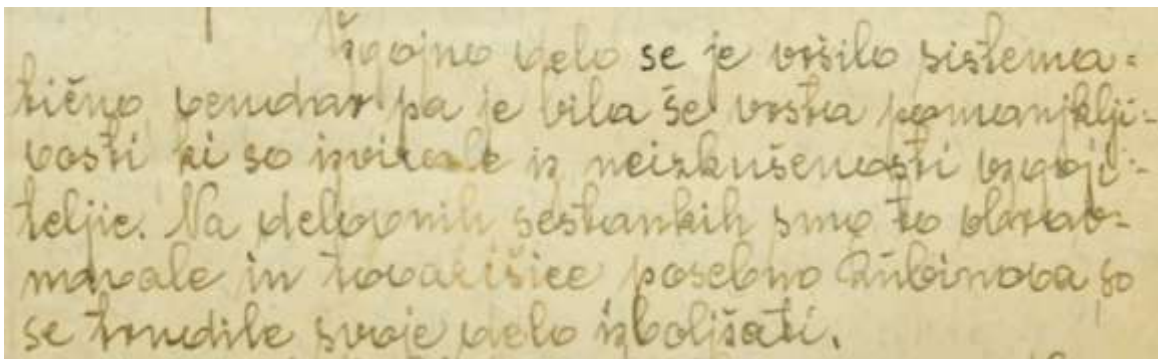 Vzgojno delo se je vršilo sistema=
tično vendar pa je bila še vrsta pomanjklji=
vosti ki so izvirale iz neizkušenosti vzgoji=
teljic. Na delovnih sestankih smo to obrav=
navale in tovarišice posebno Rubinova so
se trudile svoje delo izboljšati.